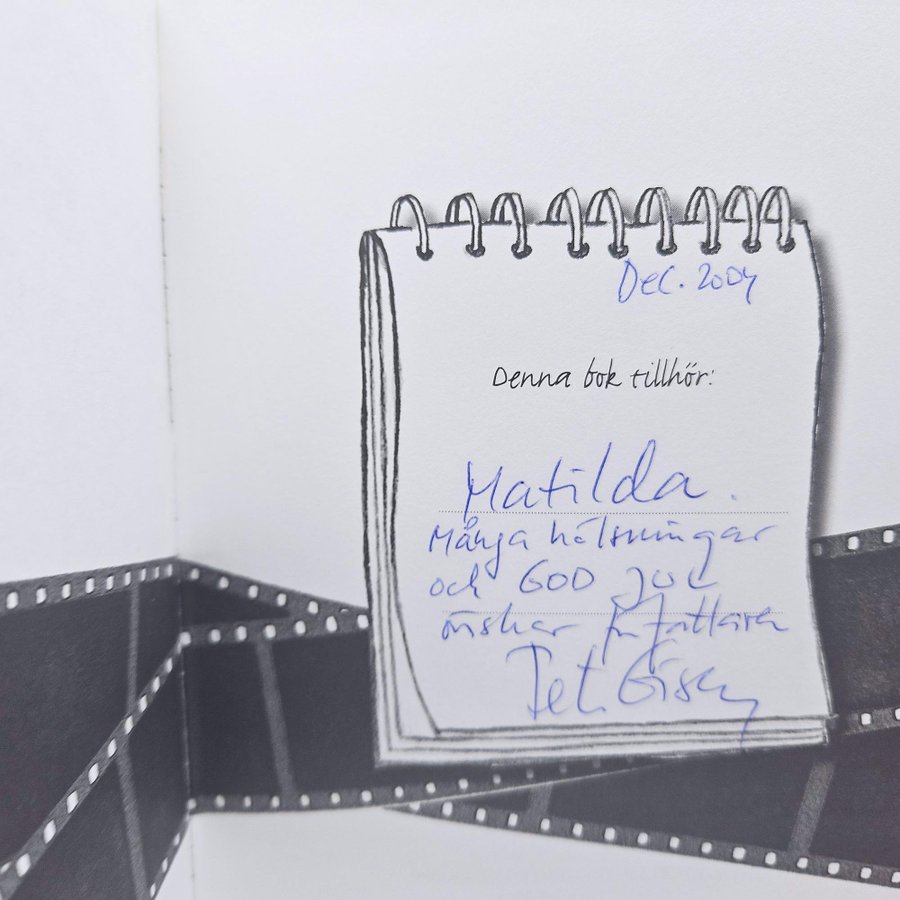 Dec. 2004
Denna bok tillhör:
Matilda.
Många hälsningar
och GOD JUL
önskar författaren
Pet